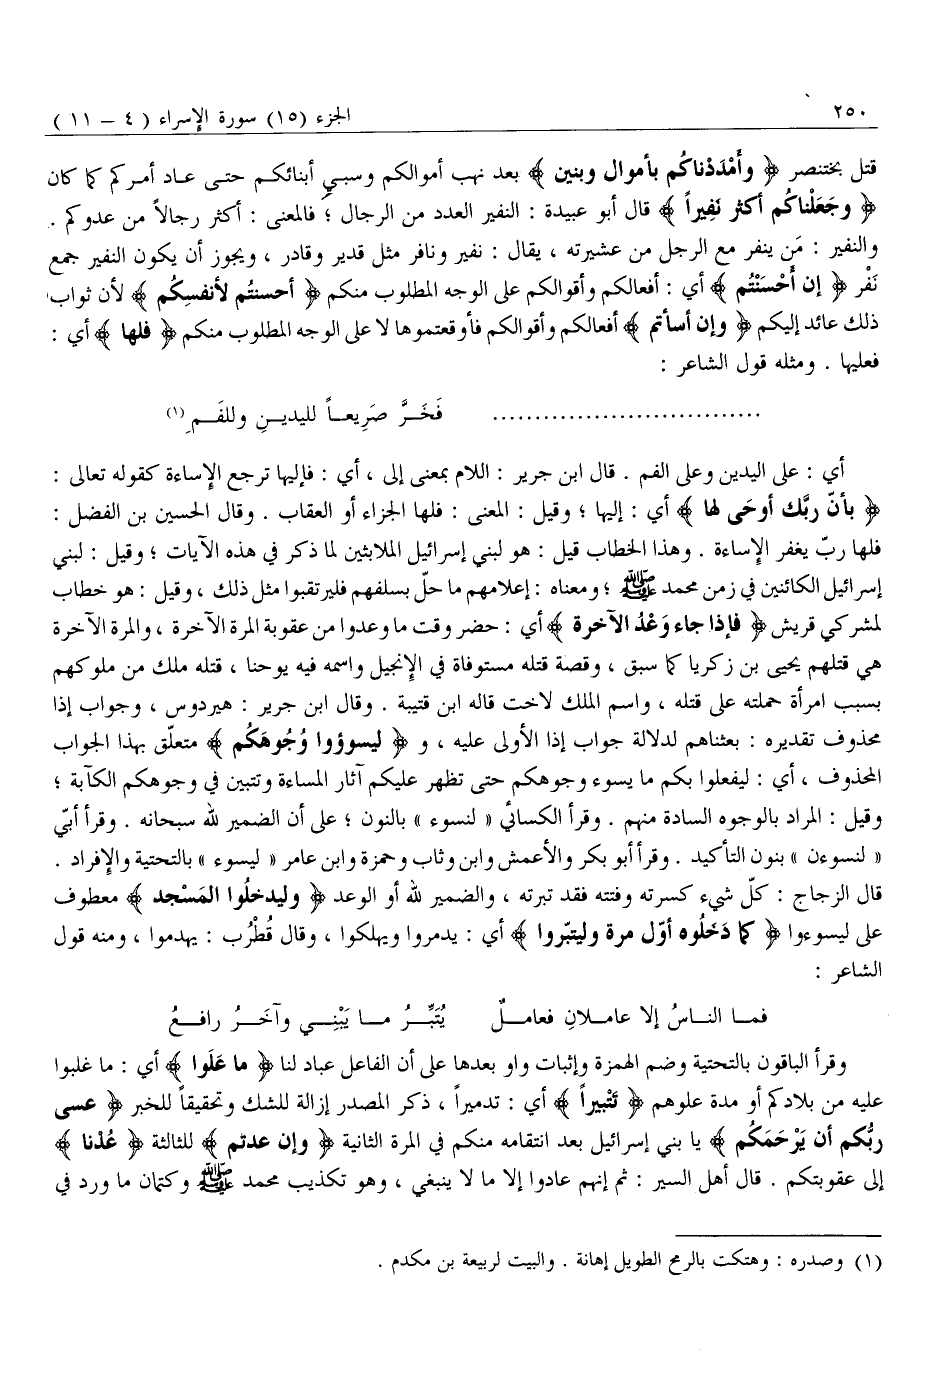 ٢٥٠ الجزء (١٥) سورة الإسراء ( ٤ - ١١ )
قتل بختنصر ﴿ وأَمْدَدْناكُم بأموال وبنين ﴾ بعد نهب أموالكم وسبي أبنائكم حتى عاد أمركم كما كان
﴿ وجَعَلْناكُم أكثر نَفِيراً ﴾ قال أبو عبيدة : النفير العدد من الرجال ؛ فالمعنى : أكثر رجالاً من عدوكم .
والنفير : مَن ينفر مع الرجل من عشيرته ، يقال : نفير ونافر مثل قدير وقادر ، ويجوز أن يكون النفير جمع
نَفْر ﴿ إن أَحْسَنْتُم ﴾ أي : أفعالكم وأقوالكم على الوجه المطلوب منكم ﴿ أحسنتُم لأنفسِكُم ﴾ لأن ثواب
ذلك عائد إليكم ﴿ وإن أسأتم ﴾ أفعالكم وأقوالكم فأوقعتموها لا على الوجه المطلوب منكم ﴿ فلها ﴾ أي :
فعليها . ومثله قول الشاعر :
................................ فَخَــرَّ صَرِيعــاً لليديــنِ وللفَــمِ (١)
أي : على اليدين وعلى الفم . قال ابن جرير : اللام بمعنى إلى ، أي : فإليها ترجع الإساءة كقوله تعالى :
﴿ بأنّ ربَّك أوحَى لها ﴾ أي : إليها ؛ وقيل : المعنى : فلها الجزاء أو العقاب . وقال الحسين بن الفضل :
فلها ربّ يغفر الإساءة . وهذا الخطاب قيل : هو لبني إسرائيل الملابثين لما ذكر في هذه الآيات ؛ وقيل : لبني
إسرائيل الكائنين في زمن محمد ﷺ ؛ ومعناه : إعلامهم ما حلّ بسلفهم فليرتقبوا مثل ذلك ، وقيل : هو خطاب
لمشركي قريش ﴿ فإذا جاء وَعْدُ الآخرة ﴾ أي : حضر وقت ما وعدوا من عقوبة المرة الآخرة ، والمرة الآخرة
هي قتلهم يحيى بن زكريا كما سبق ، وقصة قتله مستوفاة في الإنجيل واسمه فيه يوحنا ، قتله ملك من ملوكهم
بسبب امرأة حملته على قتله ، واسم الملك لاخت قاله ابن قتيبة . وقال ابن جرير : هيردوس ، وجواب إذا
محذوف تقديره : بعثناهم لدلالة جواب إذا الأولى عليه ، و ﴿ ليسوؤوا وُجُوهَكُم ﴾ متعلّق بهذا الجواب
المحذوف ، أي : ليفعلوا بكم ما يسوء وجوهكم حتى تظهر عليكم آثار المساءة وتتبين في وجوهكم الكآبة ؛
وقيل : المراد بالوجوه السادة منهم . وقرأ الكسائي « لنسوء » بالنون ؛ على أن الضمير لله سبحانه . وقرأ أبيّ
« لنسوءن » بنون التأكيد . وقرأ أبو بكر والأعمش وابن وثاب وحمزة وابن عامر « ليسوء » بالتحتية والإفراد .
قال الزجاج : كلّ شيء كسرته وفتته فقد تبرته ، والضمير لله أو الوعد ﴿ وليدخلُوا المَسْجد ﴾ معطوف
على ليسوءوا ﴿ كما دَخَلُوه أوّل مرة وليتبّروا ﴾ أي : يدمروا ويهلكوا ، وقال قُطْرُب : يهدموا ، ومنه قول
الشاعر :
فمـا الناسُ إلا عامـلانِ فعامـلٌ يُتَبِّـرُ مـا يَبْنِـي وآخَـرُ رافـعُ
وقرأ الباقون بالتحتية وضم الهمزة وإثبات واو بعدها على أن الفاعل عباد لنا ﴿ ما عَلَوا ﴾ أي : ما غلبوا
عليه من بلادكم أو مدة علوهم ﴿ تَتْبيراً ﴾ أي : تدميراً ، ذكر المصدر إزالة للشك وتحقيقاً للخبر ﴿ عسى
ربُّكم أن يَرْحَمَكُم ﴾ يا بني إسرائيل بعد انتقامه منكم في المرة الثانية ﴿ وإن عدتم ﴾ للثالثة ﴿ عُدْنا ﴾
إلى عقوبتكم . قال أهل السير : ثم إنهم عادوا إلا ما لا ينبغي ، وهو تكذيب محمد ﷺ وكتمان ما ورد في
(١) وصدره : وهتكت بالرمح الطويل إهانة . والبيت لربيعة بن مكدم .